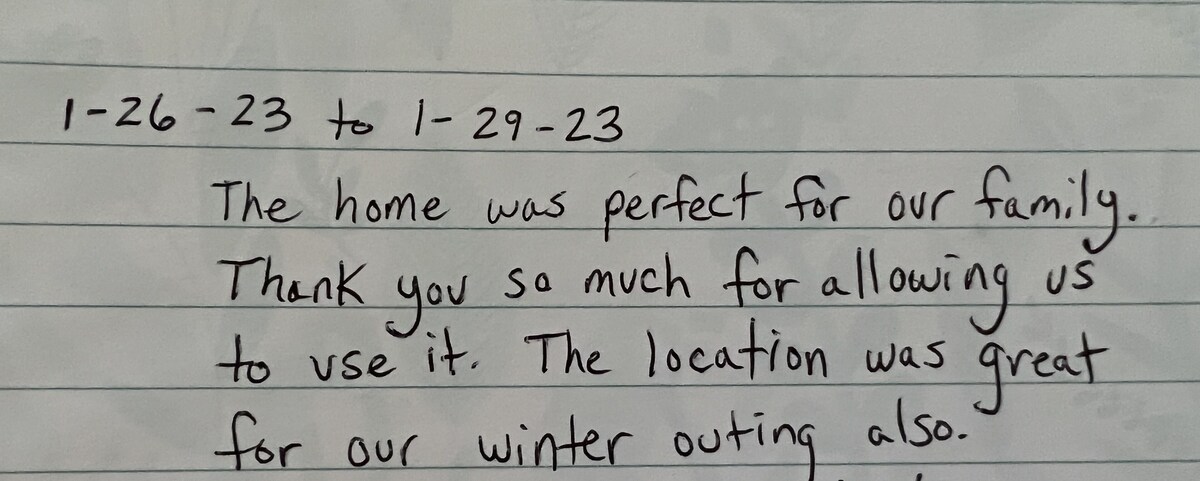 1-26-23 to 1-29-23
The home was perfect for our family.
Thank you so much for allowing us
to use it. The location was great
for our winter outing also.